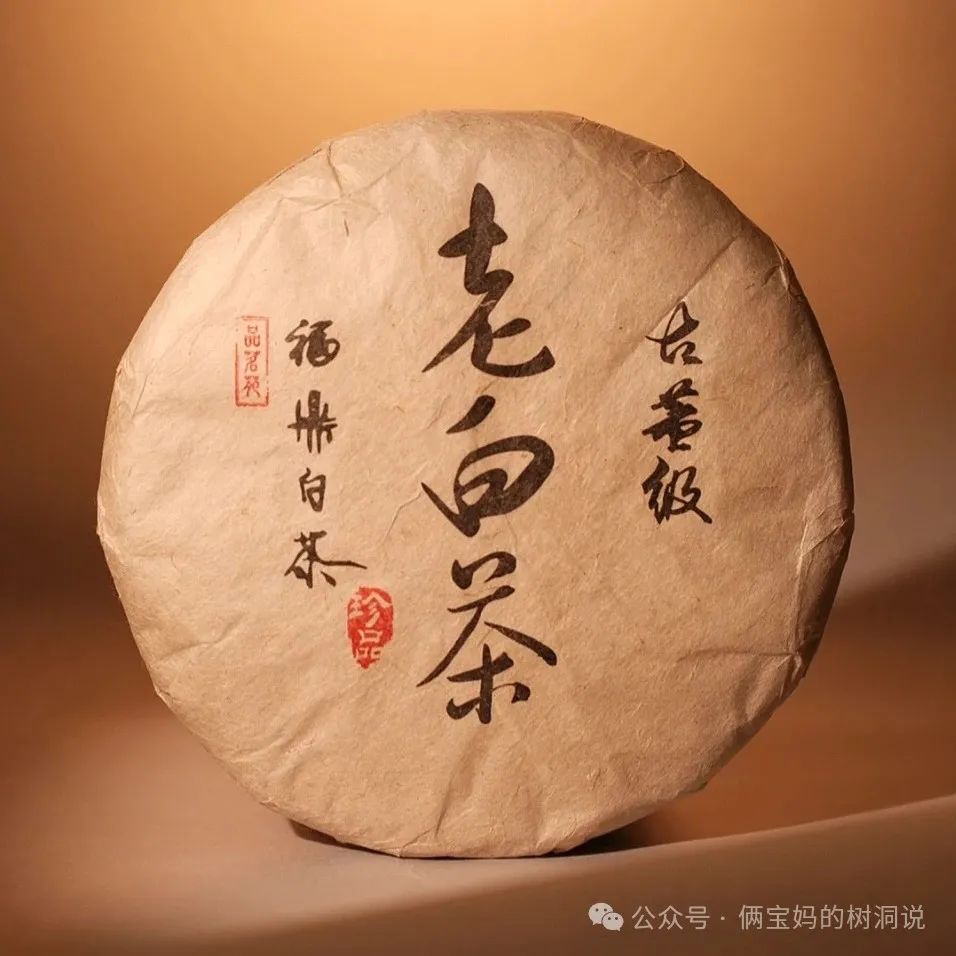 古董级
老白茶
福鼎白茶
珍品
品茗苑
公众号 · 俩宝妈的树洞说